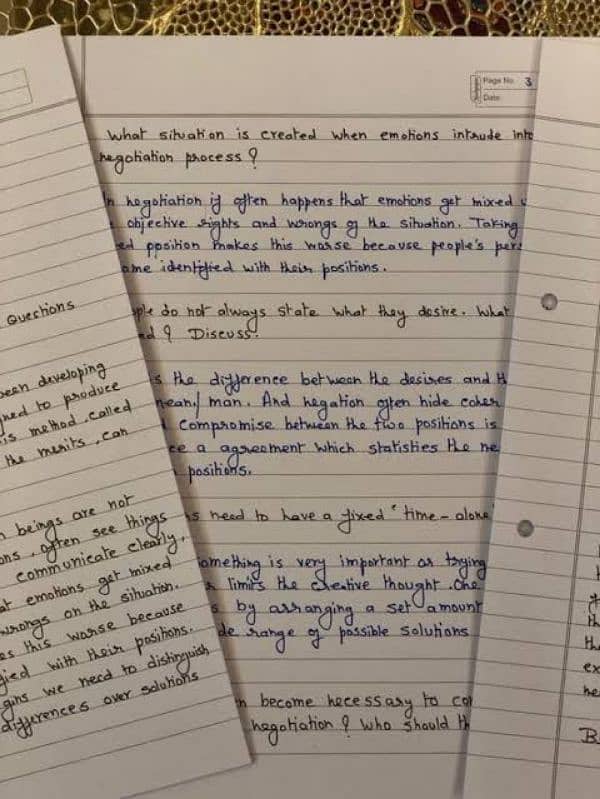 Page No. 3
Date
What situation is created when emotions intrude into
negotiation process ?
negotiation it often happens that emotions get mixed
objective rights and wrongs of the situation. Taking
position makes this worse because people's
identified with their positions.
do not always state what they desire. What
? Discuss.
the difference between the desires and
mean/ man. And negation often hide
compromise between the two positions is
a agreement which statisties the
positions.
need to have a fixed "time - alone
something is very important or trying
limits the creative thought . One
by arranging a set amount
range of possible solutions
become necessary to
negotiation ? Who should
Questions
been developing
to produce
is method .called
the merits , can
beings are not
often see things
communicate clearly,
emotions get mixed
wrongs on the situation.
this worse because
with their positions.
we need to distinguish
differences over solutions
B